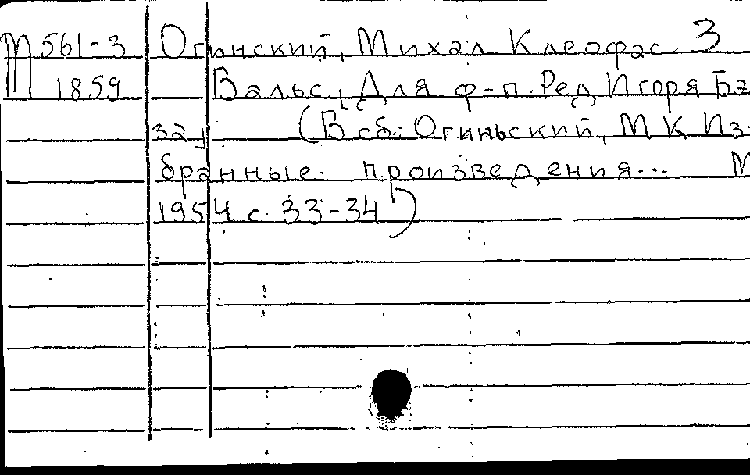 М 561-3 Огинский, Михал Клеофас 3
1859 Вальс, Для ф-п. Ред Игоря Бэ
зау (В сб: Огиньский, М К Из-
бранные произведения... М
1954 с. 33-34)